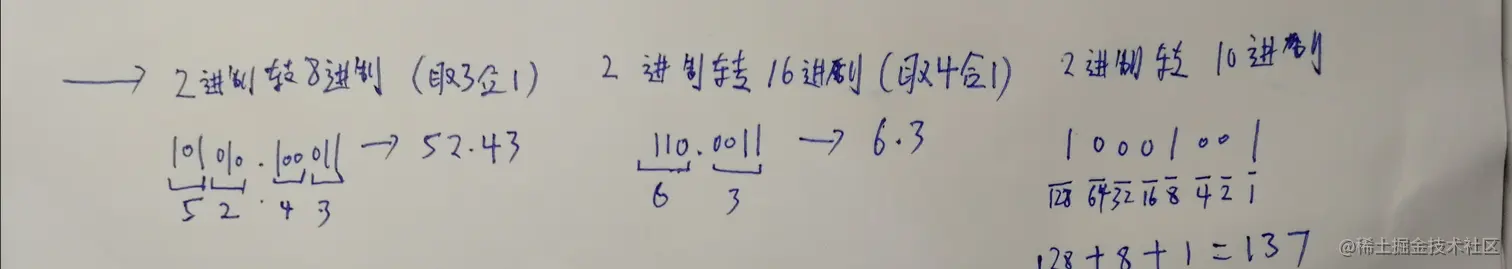 → 2进制转8进制 (取3合1) 2进制转16进制(取4合1) 2进制转10进制
101010.100011 → 52.43 110.0011 → 6.3 10001001
5 2 . 4 3 6 3 128 64 32 16 8 4 2 1
128+8+1=137
@稀土掘金技术社区